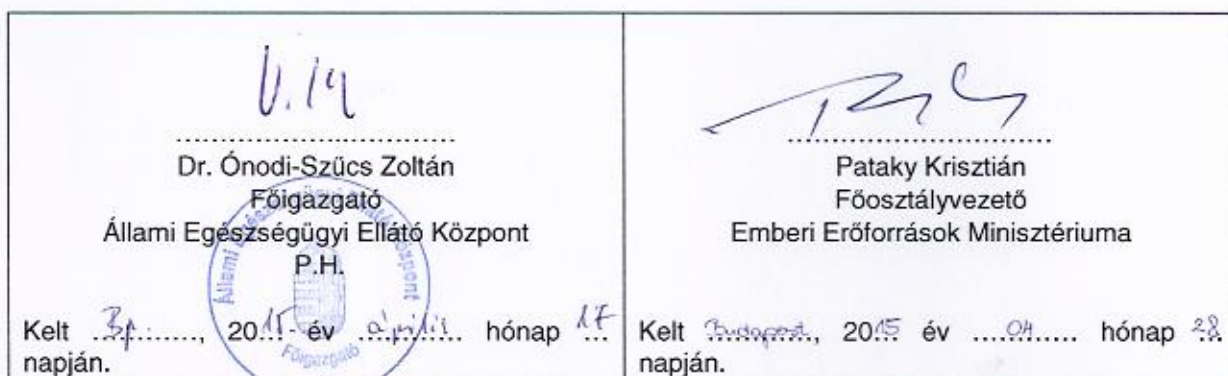 Dr. Ónodi-Szűcs Zoltán
Főigazgató
Állami Egészségügyi Ellátó Központ
P.H.
Kelt ..Bp..........., 2015. év ..április... hónap 17
napján.
Állami Egészségügyi Ellátó Központ
Főigazgató
Pataky Krisztián
Főosztályvezető
Emberi Erőforrások Minisztériuma
Kelt Budapest, 2015 év .....04....... hónap 28
napján.